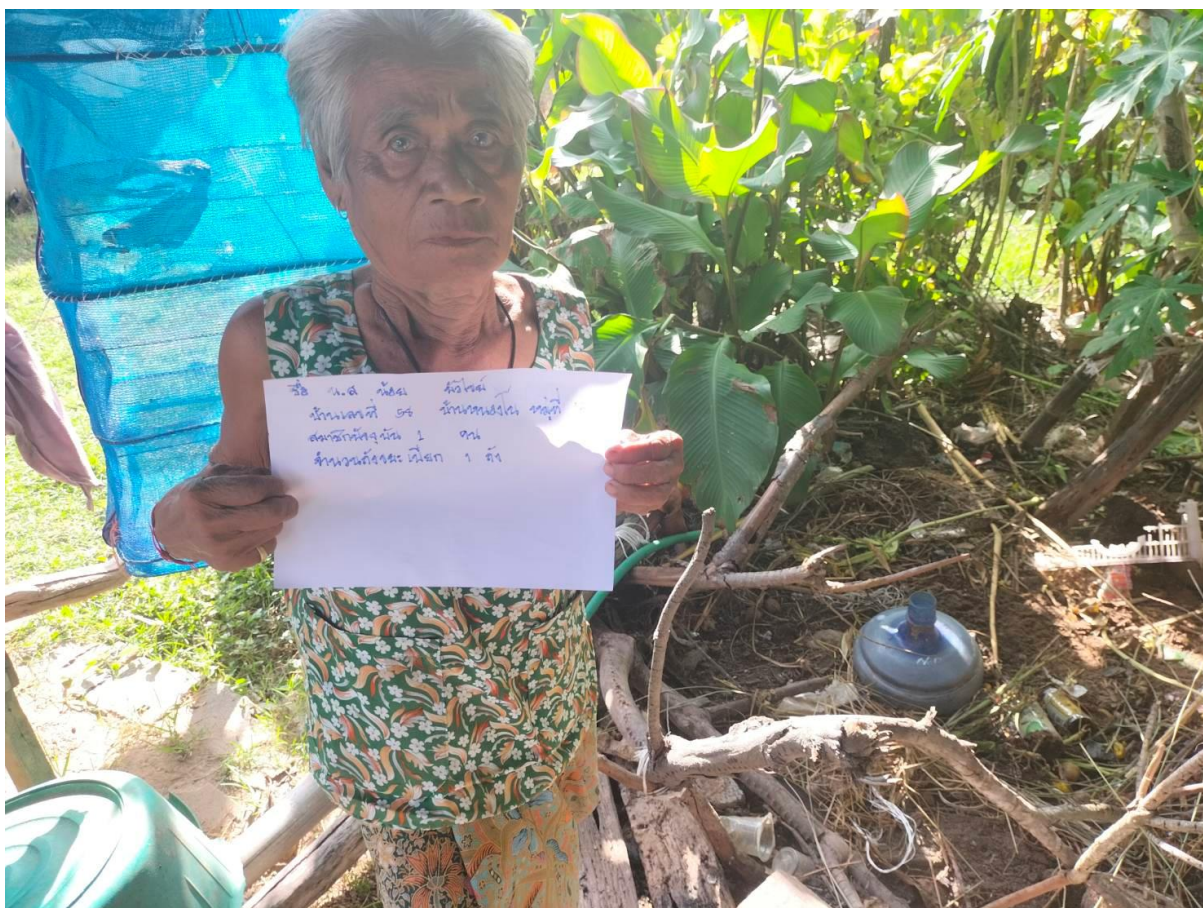 ชื่อ น.ส น้อย
บ้านเลขที่ 54 บ้านหนองโน หมู่ที่
สมาชิกปัจจุบัน 1 คน
จำนวนถังขยะเปียก 1 ถัง